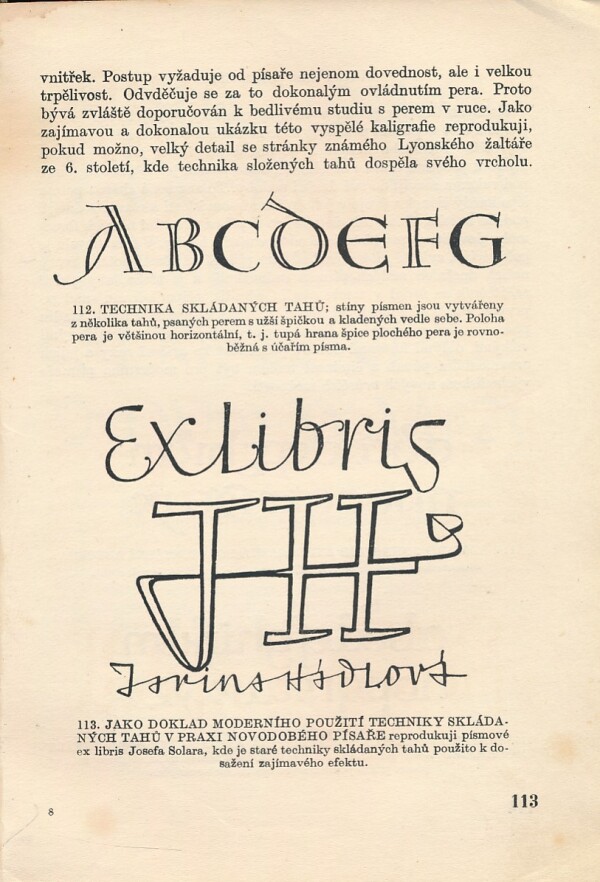 vnitřek. Postup vyžaduje od písaře nejenom dovednost, ale i velkou
trpělivost. Odvděčuje se za to dokonalým ovládnutím pera. Proto
bývá zvláště doporučován k bedlivému studiu s perem v ruce. Jako
zajímavou a dokonalou ukázku této vyspělé kaligrafie reprodukuji,
pokud možno, velký detail se stránky známého Lyonského žaltáře
ze 6. století, kde technika složených tahů dospěla svého vrcholu.
ABCDEFG
112. TECHNIKA SKLÁDANÝCH TAHŮ; stíny písmen jsou vytvářeny
z několika tahů, psaných perem s užší špičkou a kladených vedle sebe. Poloha
pera je většinou horizontální, t. j. tupá hrana špice plochého pera je rovno-
běžná s účařím písma.
Exlibris
JH
Jarina Hádlová
113. JAKO DOKLAD MODERNÍHO POUŽITÍ TECHNIKY SKLÁDA-
NÝCH TAHŮ V PRAXI NOVODOBÉHO PÍSAŘE reprodukuji písmové
ex libris Josefa Solara, kde je staré techniky skládaných tahů použito k do-
sažení zajímavého efektu.
8
113